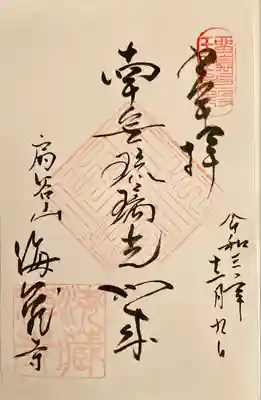 奉拝
令和三年
十二月九日
南無瑠璃光如来
扇谷山
海蔵寺